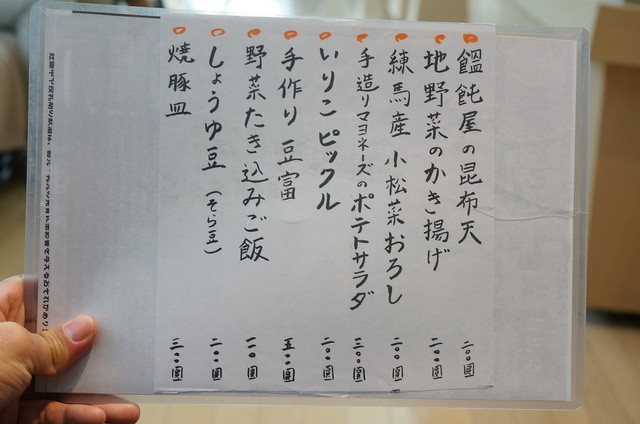 饂飩屋の昆布天 二〇〇圓
地野菜のかき揚げ 二〇〇圓
練馬産 小松菜おろし 二〇〇圓
手造りマヨネーズのポテトサラダ 三〇〇圓
いりこ ピックル 二〇〇圓
手作り 豆富 五〇〇圓
野菜たき込みご飯 二〇〇圓
しょうゆ豆 (そら豆) 二〇〇圓
焼豚皿 三〇〇圓